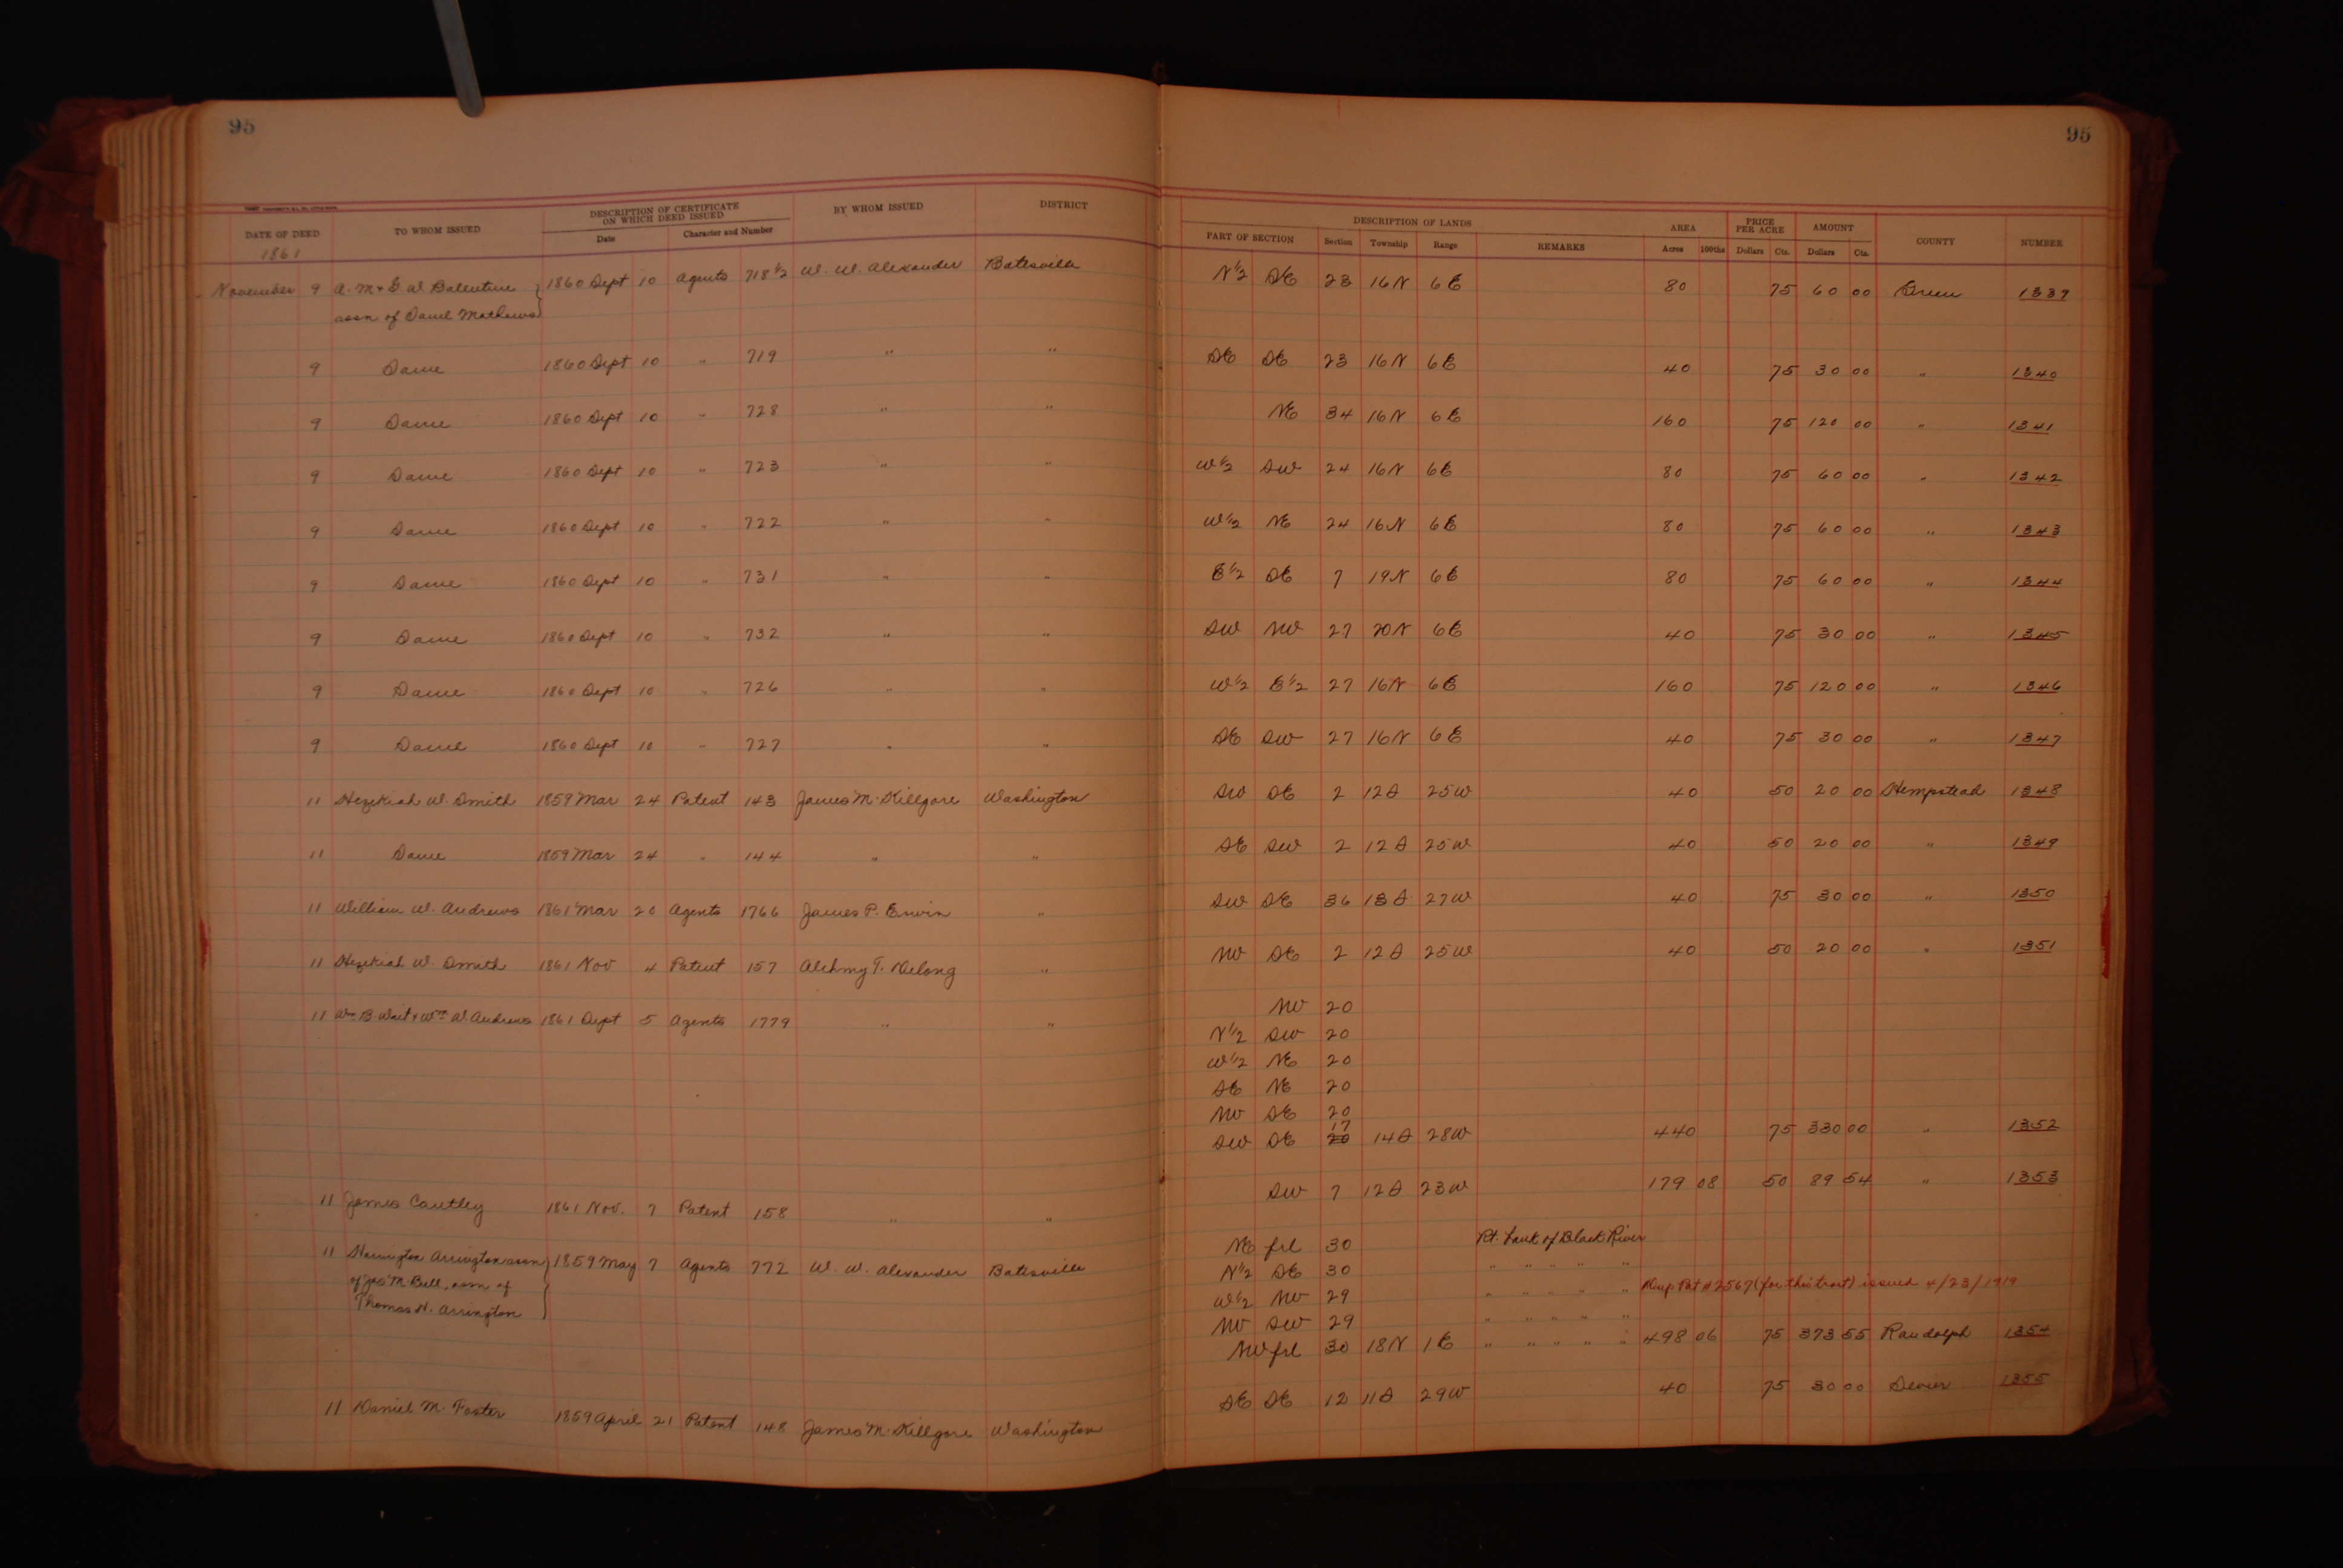 95
95
DATE OF DEED TO WHOM ISSUED DESCRIPTION OF CERTIFICATE ON WHICH DEED ISSUED Date Character and Number BY WHOM ISSUED DISTRICT DESCRIPTION OF LANDS PART OF SECTION Section Township Range REMARKS AREA Acres 100ths PRICE PER ACRE Dollars Cts. AMOUNT Dollars Cts. COUNTY NUMBER
1861
November 9 A. M & G. W Balentine 1860 Sept 10 Agents 718 1/2 W. W. Alexander Batesville N 1/2 SE 23 16 N 6 E 80 75 60 00 Green 1339
assn of Saml Mathews
9 Same 1860 Sept 10 " 719 " " SE SE 23 16 N 6 E 40 75 30 00 " 1340
9 Same 1860 Sept 10 " 728 " " NE 34 16 N 6 E 160 75 120 00 " 1341
9 Same 1860 Sept 10 " 723 " " W 1/2 SW 24 16 N 6 E 80 75 60 00 " 1342
9 Same 1860 Sept 10 " 722 " " W 1/2 NE 24 16 N 6 E 80 75 60 00 " 1343
9 Same 1860 Sept 10 " 731 " " E 1/2 SE 7 19 N 6 E 80 75 60 00 " 1344
9 Same 1860 Sept 10 " 732 " " SW NW 27 20 N 6 E 40 75 30 00 " 1345
9 Same 1860 Sept 10 " 726 " " W 1/2 E 1/2 27 16 N 6 E 160 75 120 00 " 1346
9 Same 1860 Sept 10 " 727 " " SE SW 27 16 N 6 E 40 75 30 00 " 1347
11 Hezekiah W. Smith 1859 Mar 24 Patent 143 James M. Killgore Washington SW SE 2 12 S 25 W 40 50 20 00 Hempstead 1348
11 Same 1859 Mar 24 " 144 " " SE SW 2 12 S 25 W 40 50 20 00 " 1349
11 William W. Andrews 1861 Mar 20 Agents 1766 James P. Erwin " SW SE 36 13 S 27 W 40 75 30 00 " 1350
11 Hezekiah W. Smith 1861 Nov 4 Patent 157 " NW SE 2 12 S 25 W 40 50 20 00 " 1351
11 Wm B. Wait & Wm W. Andrews 1861 Sept 5 Agents 1779 " " NW 20
N 1/2 SW 20
W 1/2 NE 20
SE NE 20
NW SE 20
17
SW SE 20 14 S 28 W 440 75 330 00 " 1352
11 James Cautley 1861 Nov. 7 Patent 158 " " SW 7 12 S 23 W 179 08 50 89 54 " 1353
11 Harrington Arrington assn 1859 May 7 Agents 772 W. W. Alexander Batesville NE frl 30 Rt. bank of Black River
of Jas M. Bell, assn of N 1/2 SE 30 " " " " "
Thomas H. Arrington W 1/2 NW 29 " " " " " Dup Pat # 2567 (for this tract) issued 4/23/1919
NW SW 29 " " " " "
NW frl 30 18 N 1 E " " " " " 498 06 75 373 55 Randolph 1354
11 Daniel M. Foster 1859 April 21 Patent 148 James M. Killgore Washington SE SE 12 11 S 29 W 40 75 30 00 Sevier 1355